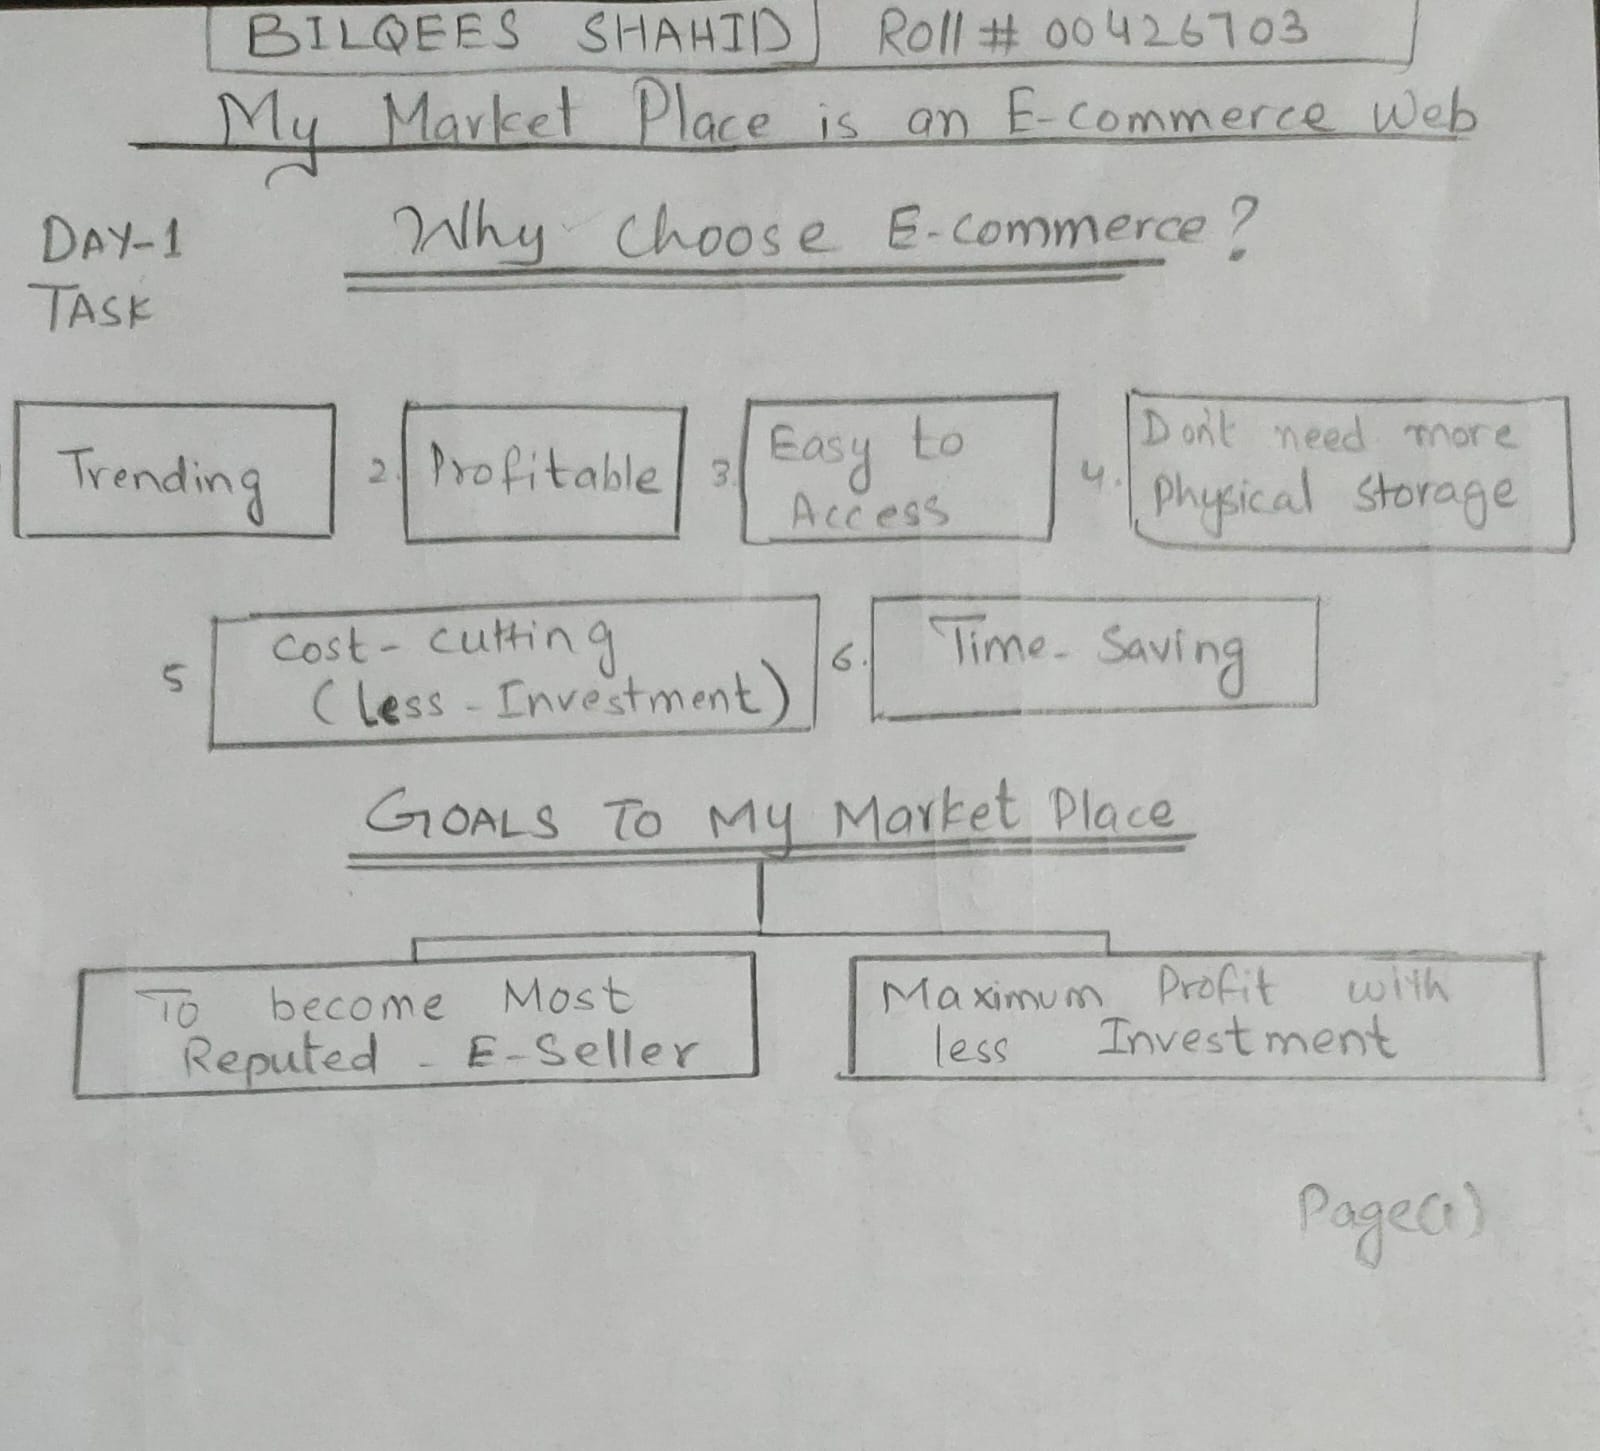 BILQEES SHAHID Roll # 00426703
My Market Place is an E-commerce Web
DAY-1
TASK
Why choose E-commerce?
Trending
2. Profitable
3. Easy to
Access
4. Don't need more
physical storage
5 cost-cutting
(less-Investment)
6. Time-Saving
GOALS TO MY Market Place
To become Most
Reputed - E-Seller
Maximum Profit with
less Investment
Page(1)